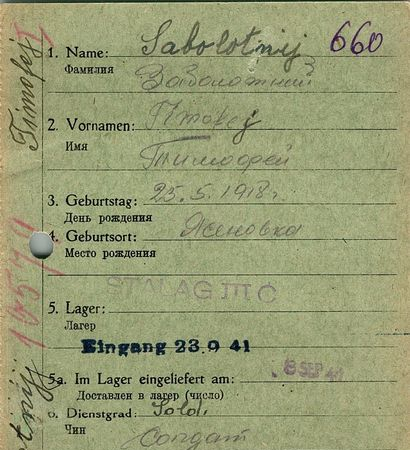 Timofej I
1. Name: Sabolotnij 660
Фамилия Заболотний
2. Vornamen:
Имя Тимофей
3. Geburtstag: 25.5.1918г.
День рождения
4. Geburtsort: Ясеновка
Место рождения
STALAG III C
5. Lager:
Лагер
Eingang 23.9 41
5a. Im Lager eingeliefert am: 8 SEP 41
Доставлен в лагер (число)
6. Dienstgrad: Sold.
Чин Солдат